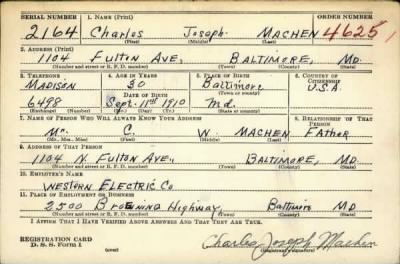 SERIAL NUMBER 1. NAME (Print) ORDER NUMBER
2164 Charles Joseph MACHEN 4625
(First) (Middle) (Last)
2. ADDRESS (Print)
1104 Fulton Ave, BALTIMORE, MD.
(Number and street or R. F. D. number) (Town) (County) (State)
3. TELEPHONE 4. AGE IN YEARS 5. PLACE OF BIRTH 6. COUNTRY OF CITIZENSHIP
MADISON 30 Baltimore U.S.A.
DATE OF BIRTH (Town or county)
6498 Sept. 11th 1910 Md.
(Exchange) (Number) (Mo.) (Day) (Yr.) (State or country)
7. NAME OF PERSON WHO WILL ALWAYS KNOW YOUR ADDRESS 8. RELATIONSHIP OF THAT PERSON
Mr. C. W. MACHEN FATHER
(Mr., Mrs., Miss) (First) (Middle) (Last)
9. ADDRESS OF THAT PERSON
1104 N. Fulton Ave., BALTIMORE, MD.
(Number and street or R. F. D. number) (Town) (County) (State)
10. EMPLOYER'S NAME
WESTERN ELECTRIC Co
11. PLACE OF EMPLOYMENT OR BUSINESS
2500 Broening Highway, Baltimore MD
(Number and street or R. F. D. number) (Town) (County) (State)
I AFFIRM THAT I HAVE VERIFIED ABOVE ANSWERS AND THAT THEY ARE TRUE.
REGISTRATION CARD
D. S. S. FORM 1 (over) Charles Joseph Machen
(Registrant's signature)